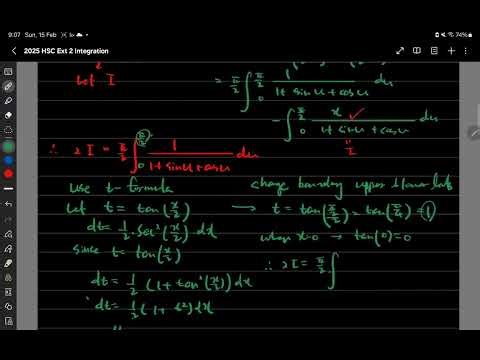 9:07 Sun, 15 Feb 74%
2025 HSC Ext 2 Integration
Let I = π/2 ∫₀^(π/2) 1/(1+sinx+cosx) dx
- ∫₀^(π/2) x/(1+sinx+cosx) dx
"
I
∴ 2I = π/2 ∫₀^(π/2) 1/(1+sinx+cosx) dx
Use t-formula
Let t = tan(x/2)
dt = 1/2 · sec²(x/2) dx
since t = tan(x/2)
dt = 1/2 (1+tan²(x/2)) dx
dt = 1/2 (1+t²) dx
change boundary upper & lower
→ t = tan(π/2/2) = tan(π/4) = 1
when x=0 → tan(0)=0
∴ 2I = π/2 ∫